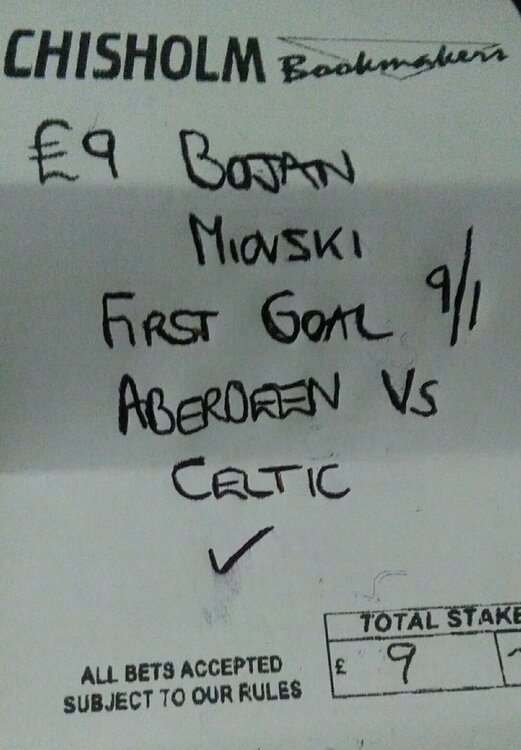 CHISHOLM Bookmakers
£9 BOJAN
MIOVSKI
FIRST GOAL 9/1
ABERDEEN VS
CELTIC
✓
TOTAL STAKE
£ 9
ALL BETS ACCEPTED
SUBJECT TO OUR RULES